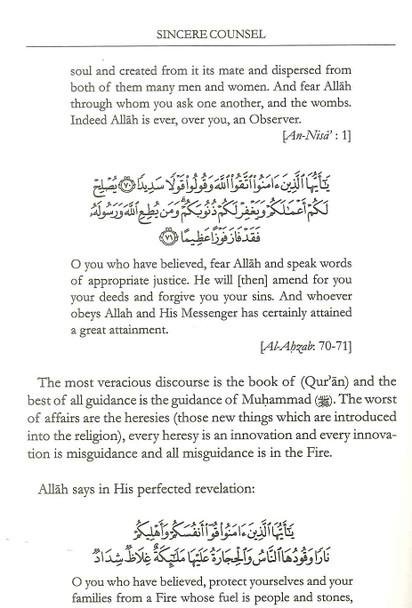 SINCERE COUNSEL
soul and created from it its mate and dispersed from
both of them many men and women. And fear Allāh
through whom you ask one another, and the wombs.
Indeed Allāh is ever, over you, an Observer.
[An-Nisā' : 1]
يَٰٓأَيُّهَا ٱلَّذِينَ ءَامَنُوا۟ ٱتَّقُوا۟ ٱللَّهَ وَقُولُوا۟ قَوْلًا سَدِيدًا ﴿٧٠﴾ يُصْلِحْ
لَكُمْ أَعْمَٰلَكُمْ وَيَغْفِرْ لَكُمْ ذُنُوبَكُمْ وَمَن يُطِعِ ٱللَّهَ وَرَسُولَهُۥ
فَقَدْ فَازَ فَوْزًا عَظِيمًا ﴿٧١﴾
O you who have believed, fear Allāh and speak words
of appropriate justice. He will [then] amend for you
your deeds and forgive you your sins. And whoever
obeys Allah and His Messenger has certainly attained
a great attainment.
[Al-Aḥzab: 70-71]
The most veracious discourse is the book of (Qur'ān) and the
best of all guidance is the guidance of Muḥammad (ﷺ). The worst
of affairs are the heresies (those new things which are introduced
into the religion), every heresy is an innovation and every innova-
tion is misguidance and all misguidance is in the Fire.
Allāh says in His perfected revelation:
يَٰٓأَيُّهَا ٱلَّذِينَ ءَامَنُوا۟ قُوٓا۟ أَنفُسَكُمْ وَأَهْلِيكُمْ
نَارًا وَقُودُهَا ٱلنَّاسُ وَٱلْحِجَارَةُ عَلَيْهَا مَلَٰٓئِكَةٌ غِلَاظٌ شِدَادٌ
O you who have believed, protect yourselves and your
families from a Fire whose fuel is people and stones,